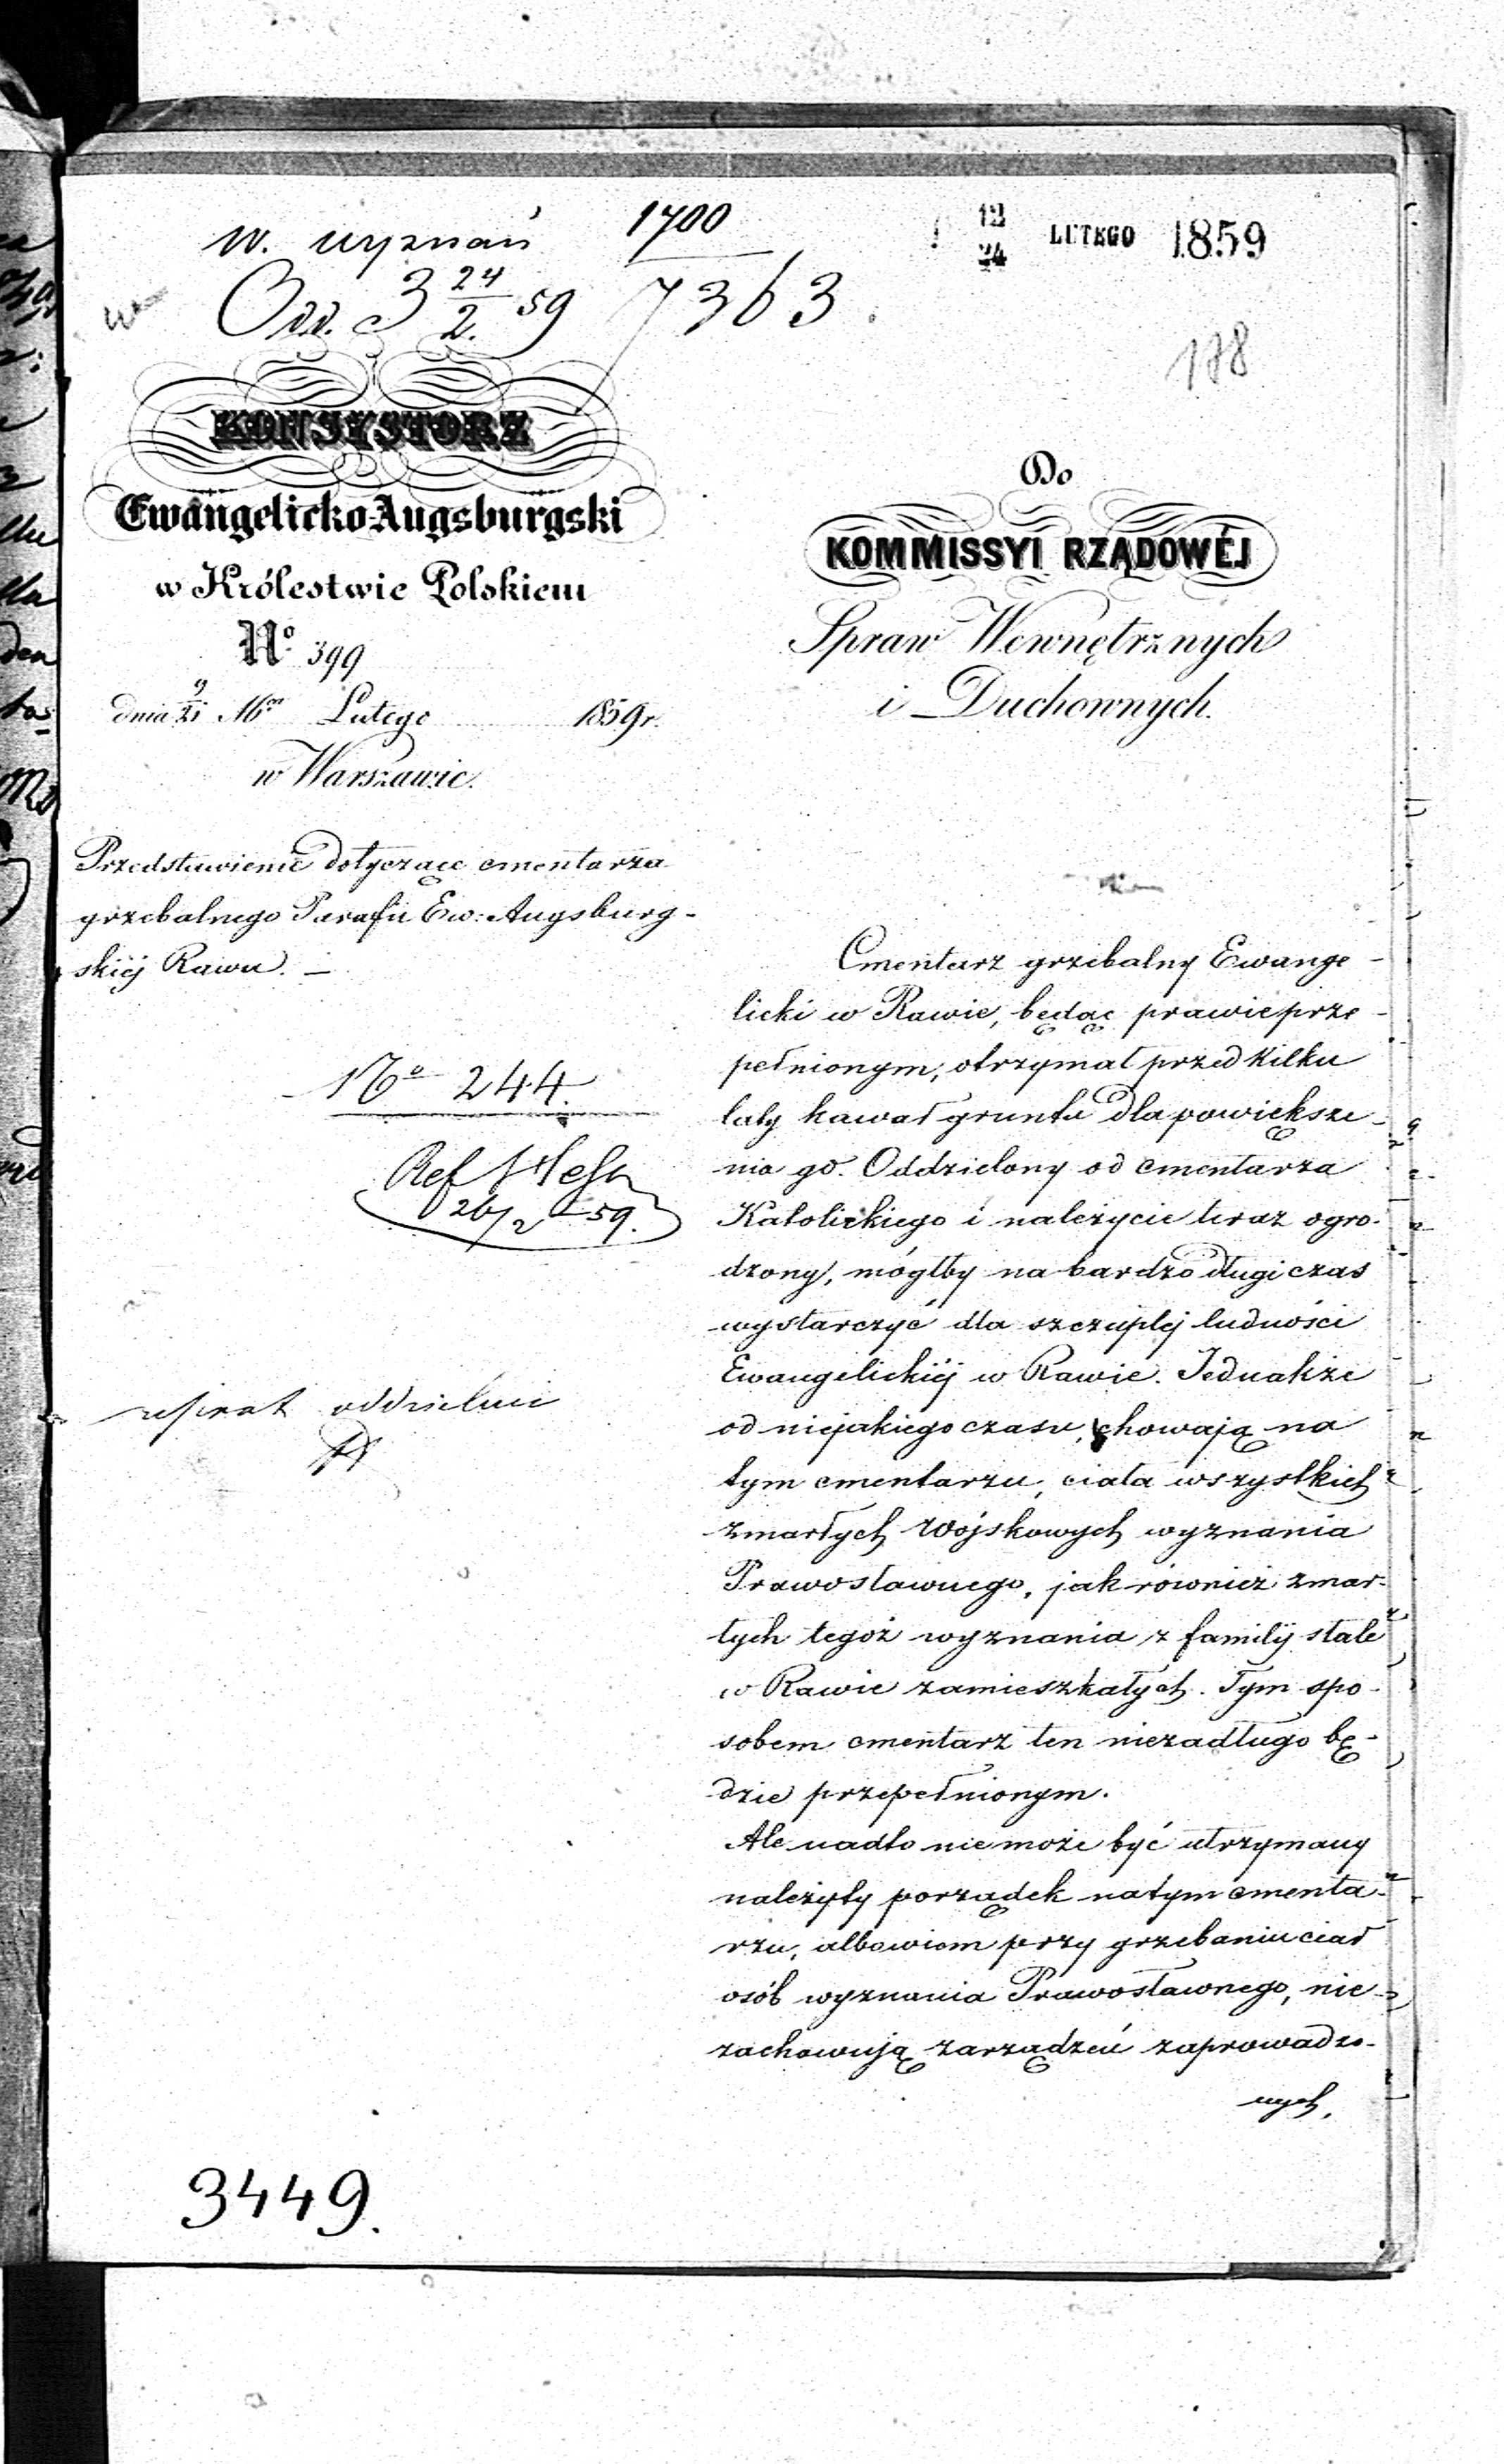 W. wyznań
1700
12/24 LUTEGO 1859
Odd. 3 24/2. 59
7363.
178
KONSYSTORZ
Ewangelicko-Augsburgski
w Królestwie Polskiem
Nº 399
dnia 9/21 Mca Lutego 1859 r.
w Warszawie.
Do
KOMMISSYI RZĄDOWÉJ
Spraw Wewnętrznych
i Duchownych.
Przedstawienie dotyczące cmentarza
grzebalnego Parafii Ew: Augsburg-
skiéj Rawa. —
No 244.
Ref
26/2 59.
referat oddzielnie
Cmentarz grzebalny Ewange-
licki w Rawie, będąc prawie prze-
pełnionym, otrzymał przed kilku
laty kawał gruntu dla powiększe-
nia go. Oddzielony od cmentarza
Katolickiego i należycie teraz ogro-
dzony, mógłby na bardzo długi czas
wystarczyć dla szczupłej ludności
Ewangelickiéj w Rawie. Jednakże
od niejakiego czasu, chowają na
tym cmentarzu, ciała wszystkich
zmarłych Wojskowych wyznania
Prawosławnego, jak również zmar-
łych tegoż wyznania z familij stale
w Rawie zamieszkałych. Tym spo-
sobem cmentarz ten niezadługo bę-
dzie przepełnionym.
Ale nadto nie może być utrzymany
należyty porządek na tym cmenta-
rzu, albowiem przy grzebaniu ciał
osób wyznania Prawosławnego, nie
zachowują zarządzeń zaprowadzo-
nych,
3449.